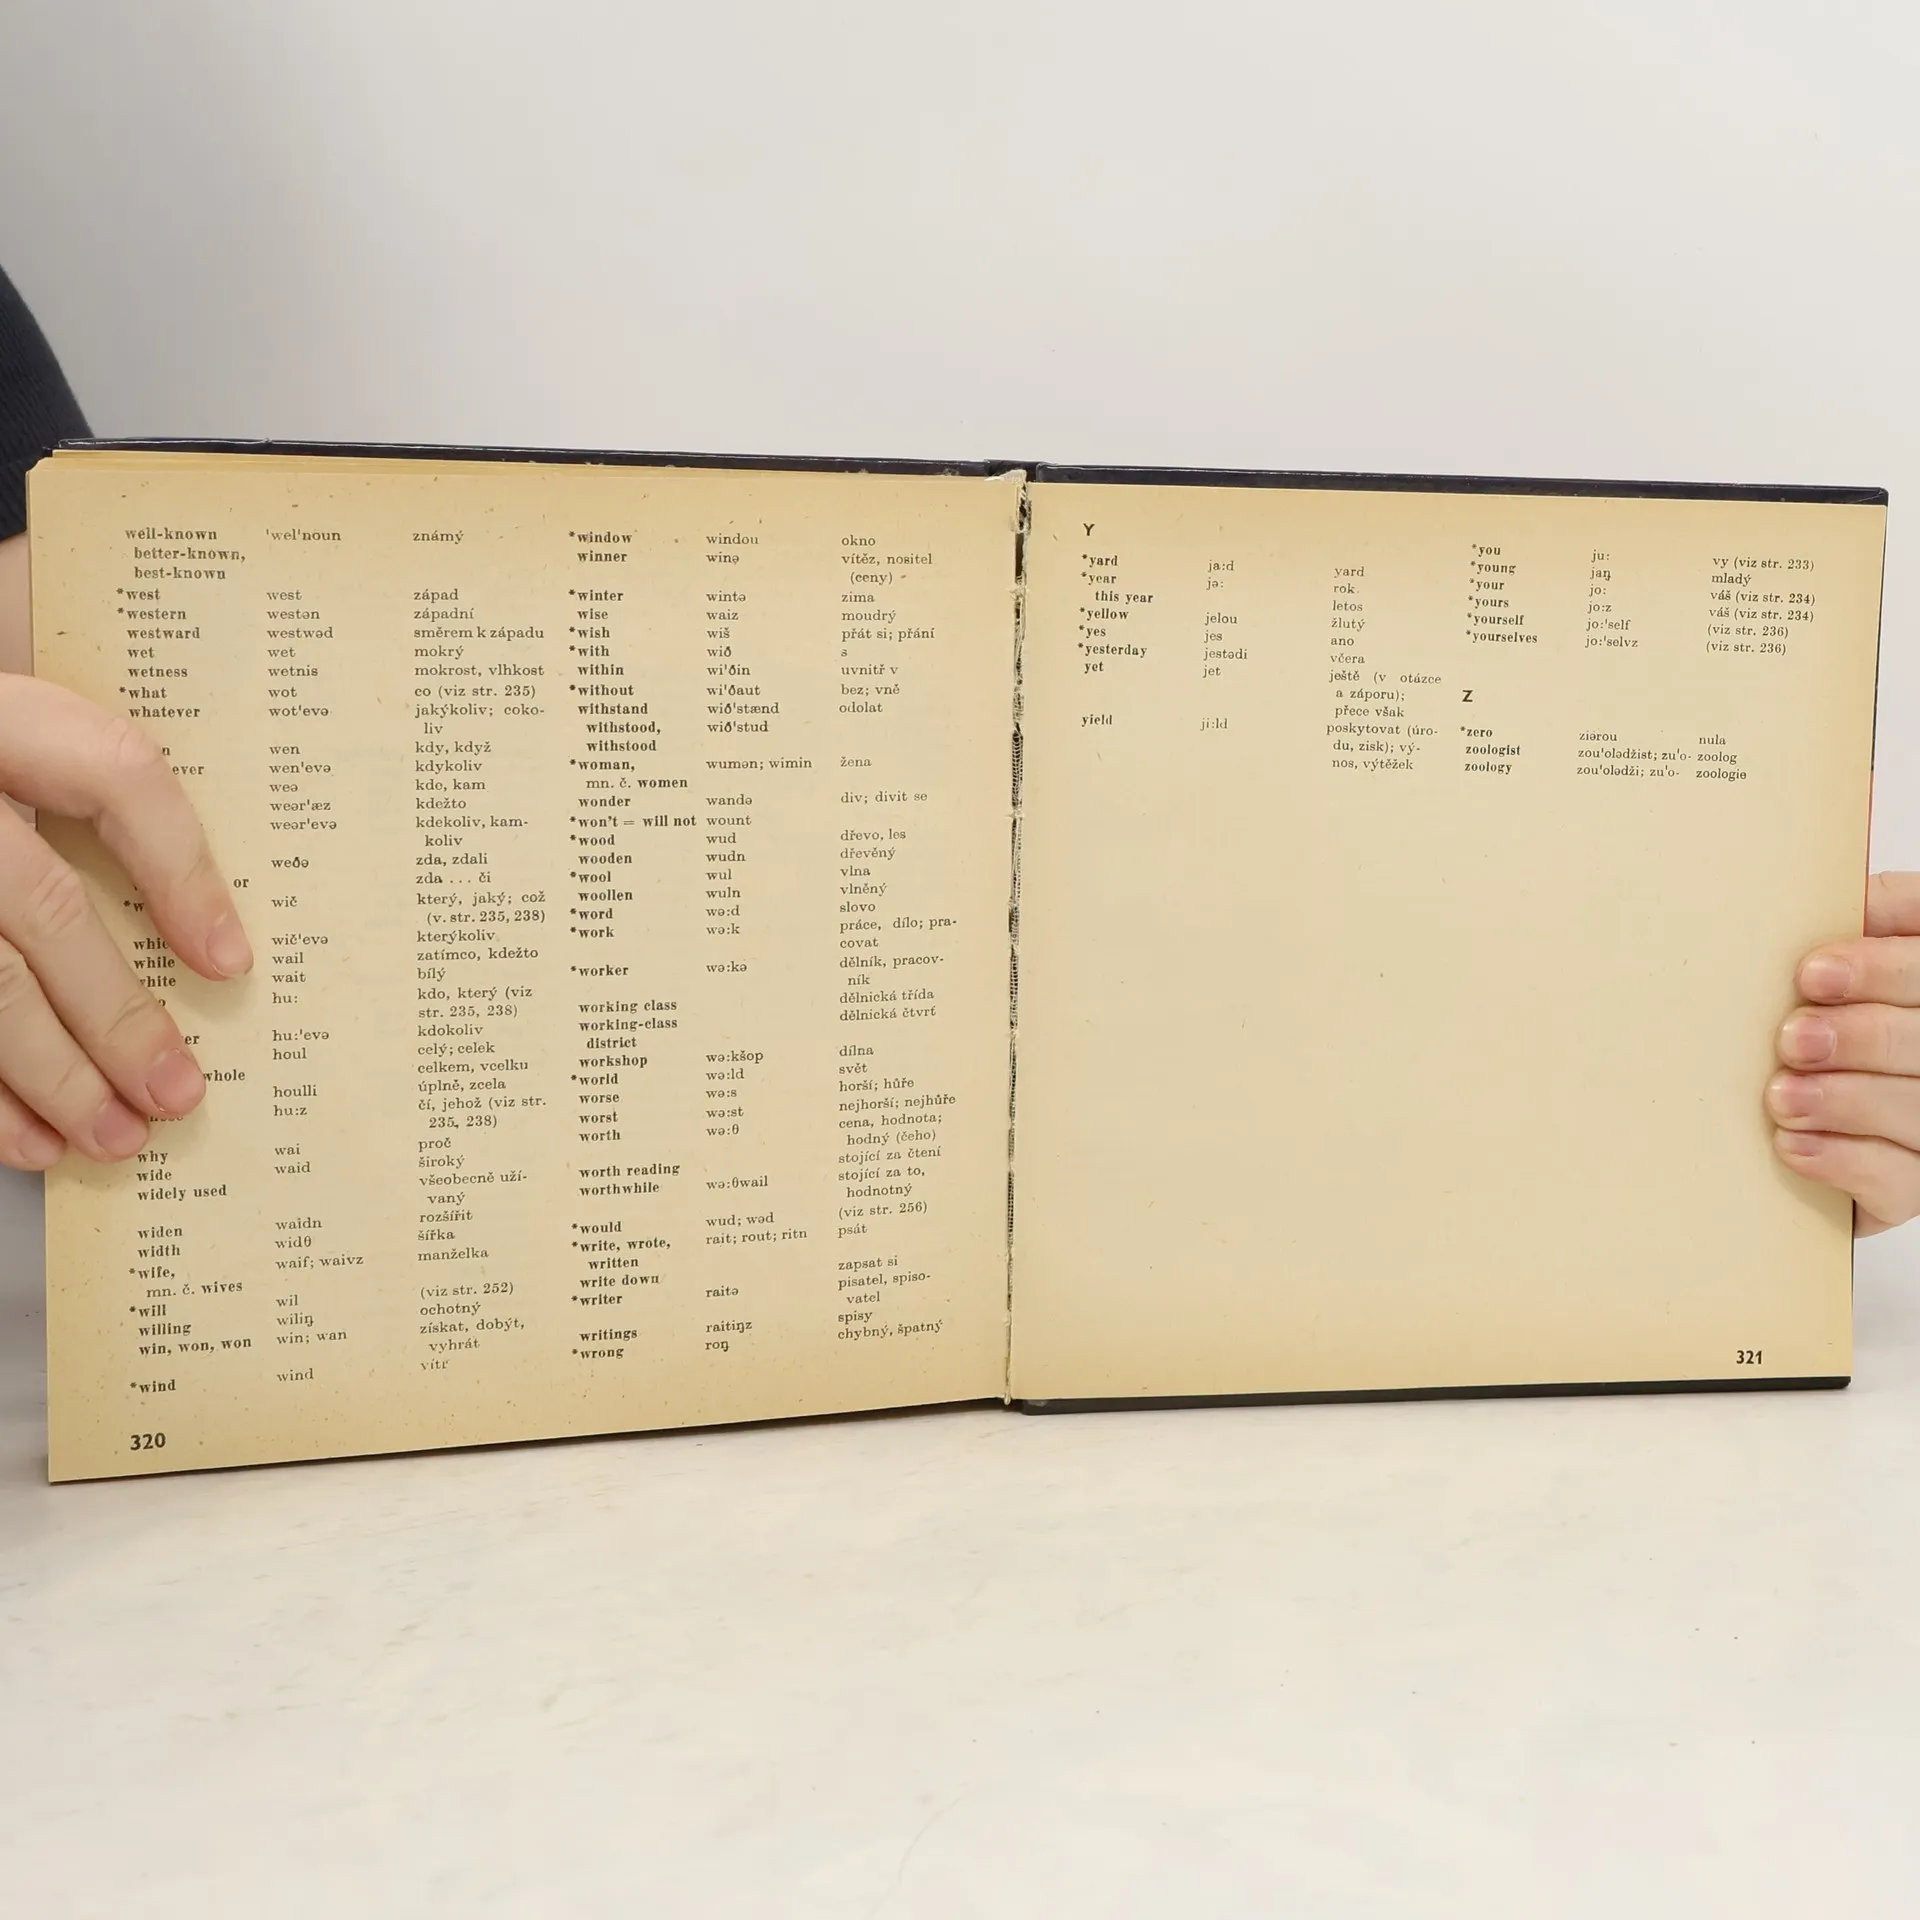 well-known 'wel'noun známý
better-known,
best-known
*west west západ
*western westən západní
westward westwəd směrem k západu
wet wet mokrý
wetness wetnis mokrost, vlhkost
*what wot co (viz str. 235)
whatever wot'evə jakýkoliv; coko-
liv
wen kdy, když
ever wen'evə kdykoliv
weə kde, kam
weər'æz kdežto
weər'evə kdekoliv, kam-
koliv
weðə zda, zdali
or zda . . . či
wič který, jaký; což
(v. str. 235, 238)
wič'evə kterýkoliv
while wail zatímco, kdežto
wait bílý
hu: kdo, který (viz
str. 235, 238)
hu:'evə kdokoliv
houl celý; celek
whole celkem, vcelku
houlli úplně, zcela
hu:z čí, jehož (viz str.
235, 238)
why wai proč
wide waid široký
widely used všeobecně uží-
vaný
widen waidn rozšířit
width widθ šířka
*wife, waif; waivz manželka
mn. č. wives
*will wil (viz str. 252)
willing wiliŋ ochotný
win, won, won win; wan získat, dobýt,
vyhrát
*wind wind vítr
320
*window windou okno
winner winə vítěz, nositel
(ceny)
*winter wintə zima
wise waiz moudrý
*wish wiš přát si; přání
*with wið s
within wi'ðin uvnitř v
*without wi'ðaut bez; vně
withstand wið'stænd odolat
withstood, wið'stud
withstood
*woman, wumən; wimin žena
mn. č. women
wonder wandə div; divit se
*won't = will not wount
*wood wud dřevo, les
wooden wudn dřevěný
*wool wul vlna
woollen wuln vlněný
*word wə:d slovo
*work wə:k práce, dílo; pra-
covat
*worker wə:kə dělník, pracov-
ník
working class dělnická třída
working-class dělnická čtvrť
district
workshop wə:kšop dílna
*world wə:ld svět
worse wə:s horší; hůře
worst wə:st nejhorší; nejhůře
worth wə:θ cena, hodnota;
hodný (čeho)
worth reading stojící za čtení
worthwhile wə:θwail stojící za to,
hodnotný
*would wud; wəd (viz str. 256)
*write, wrote, rait; rout; ritn psát
written
write down zapsat si
*writer raitə pisatel, spiso-
vatel
writings raitiŋz spisy
*wrong roŋ chybný, špatný
Y
*yard ja:d yard
*year jə: rok
this year letos
*yellow jelou žlutý
*yes jes ano
*yesterday jestədi včera
yet jet ještě (v otázce
a záporu);
přece však
yield ji:ld poskytovat (úro-
du, zisk); vý-
nos, výtěžek
*you ju: vy (viz str. 233)
*young jaŋ mladý
*your jo: váš (viz str. 234)
*yours jo:z váš (viz str. 234)
*yourself jo:'self (viz str. 236)
*yourselves jo:'selvz (viz str. 236)
Z
*zero ziərou nula
zoologist zou'olədžist; zu'o- zoolog
zoology zou'olədži; zu'o- zoologie
321